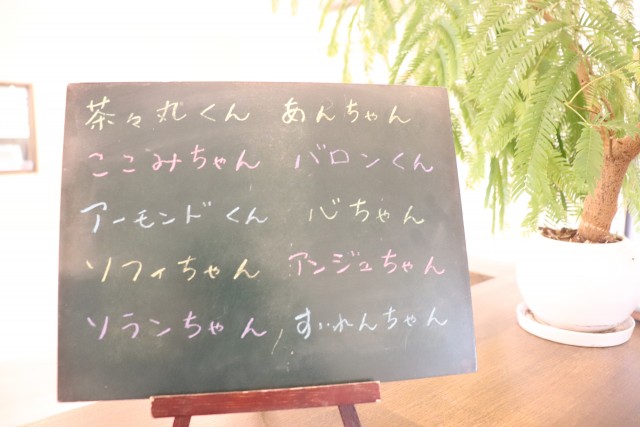 茶々丸くん あんちゃん
ここみちゃん バロンくん
アーモンドくん 心ちゃん
ソフィちゃん アンジュちゃん
ソランちゃん すいれんちゃん